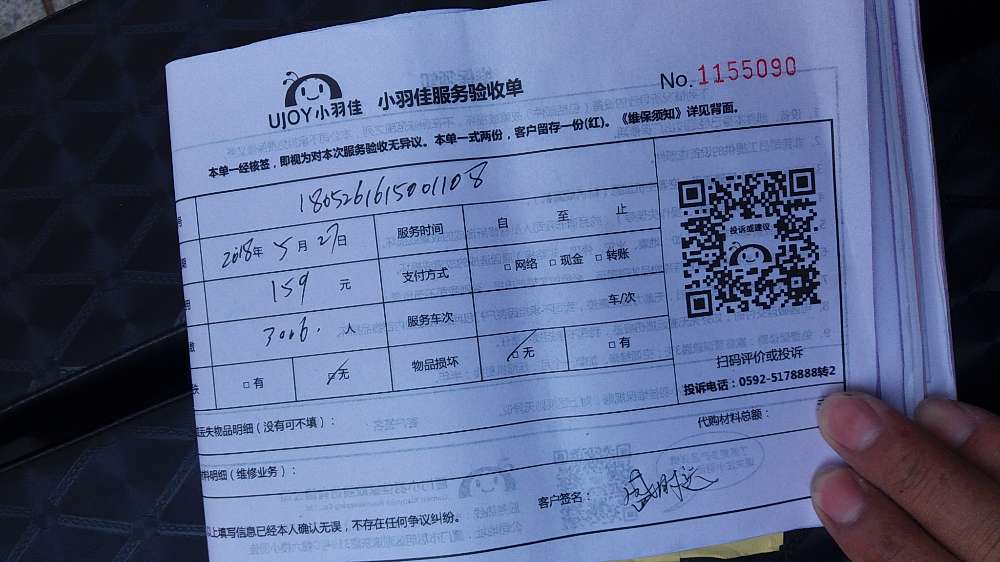 UJOY小羽佳 小羽佳服务验收单 No. 1155090
本单一经核签，即视为对本次服务验收无异议。本单一式两份，客户留存一份(红)。《维保须知》详见背面。
1805261615001108
2018年 5月 27日 服务时间 自 至 止
159 元 支付方式 □网络 □现金 □转账
3006. 人 服务车次 车/次
□有 □无 物品损坏 □无 □有
投诉或建议
扫码评价或投诉
投诉电话：0592-5178888转2
失物品明细（没有可不填）：
代购材料总额：
料明细（维修业务）：
客户签名：
上填写信息已经本人确认无误，不存在任何争议纠纷。